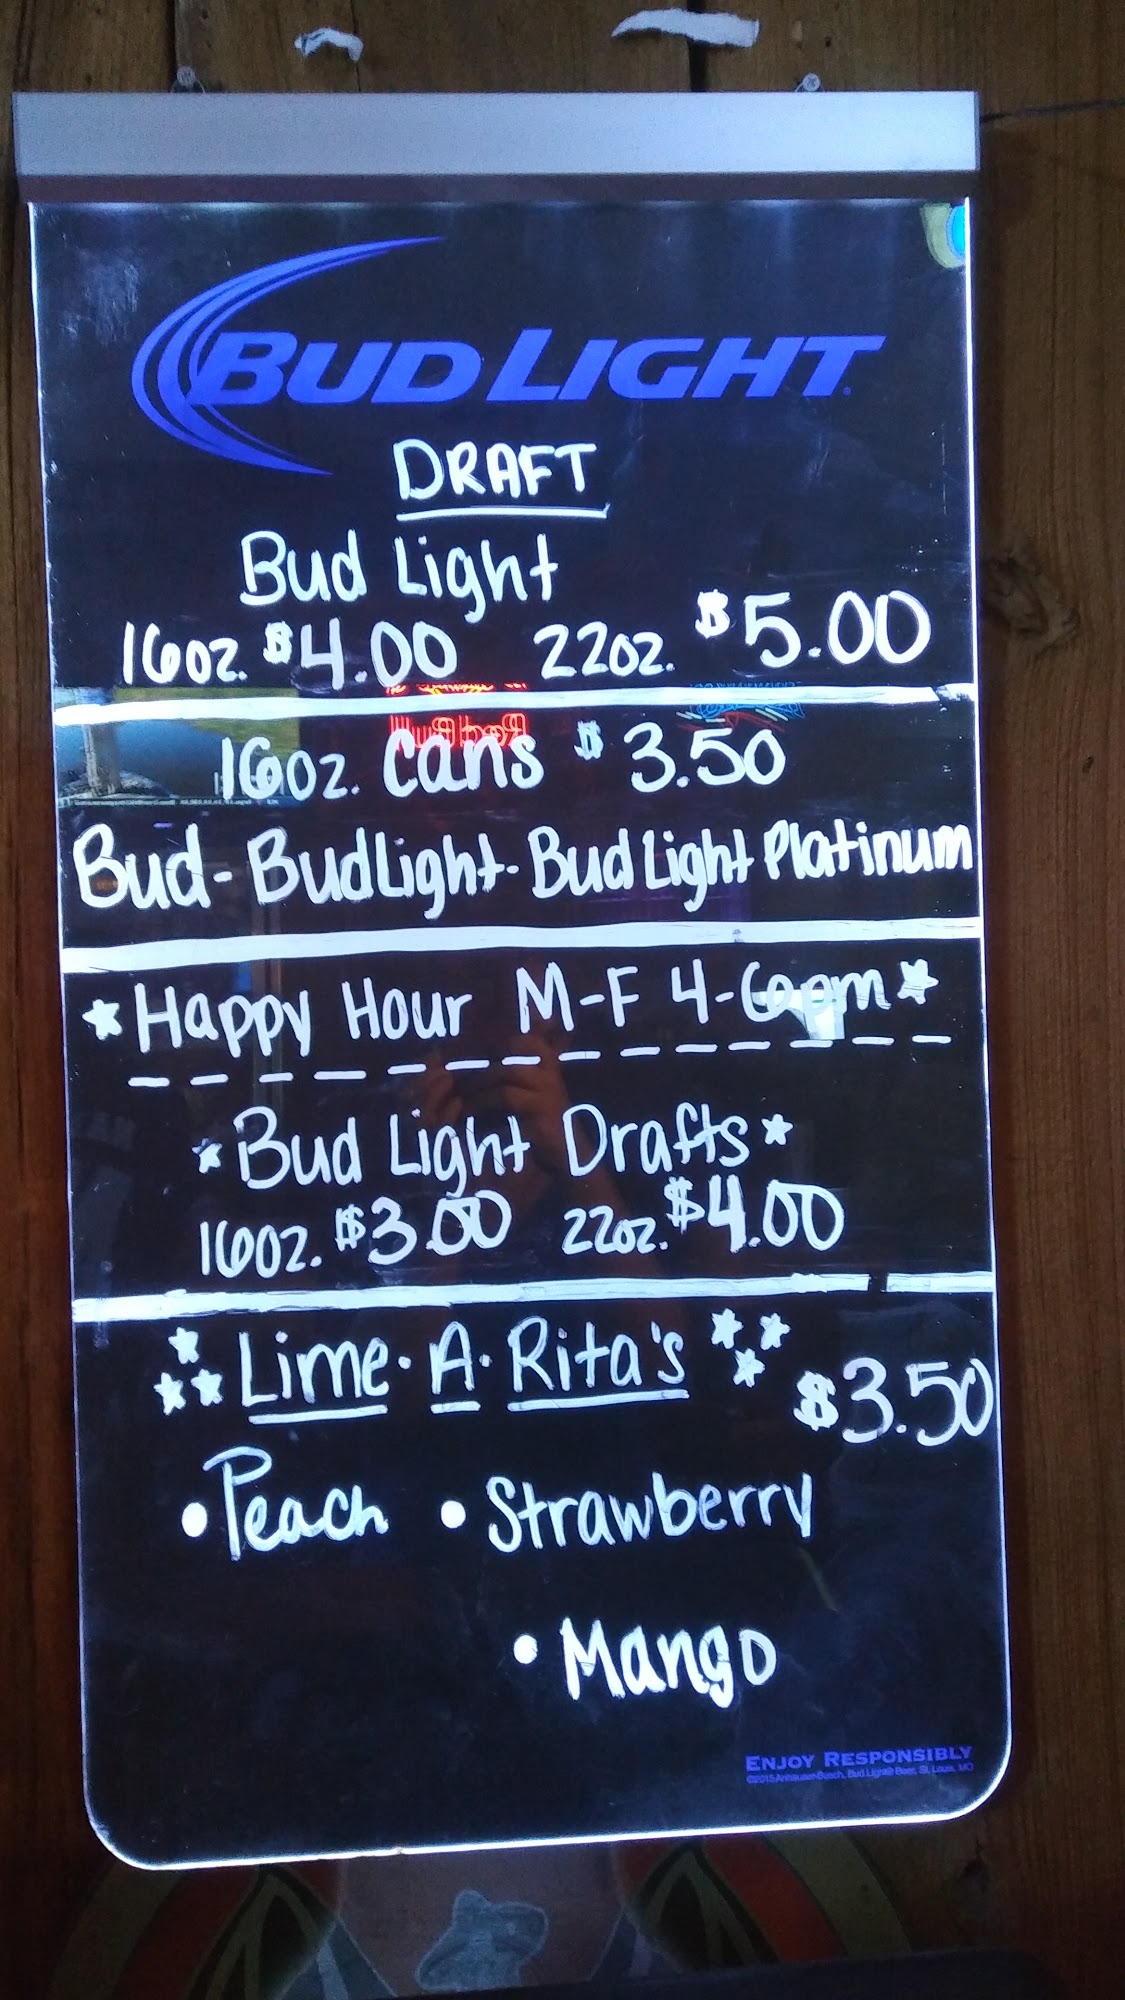 BUD LIGHT
DRAFT
Bud Light
16oz. $4.00 22oz. $5.00
16oz. Cans $3.50
Bud - Bud Light - Bud Light Platinum
Happy Hour M-F 4-6pm
Bud Light Drafts
16oz. $3.00 22oz. $4.00
Lime · A · Rita's $3.50
• Peach • Strawberry
• Mango
ENJOY RESPONSIBLY
©2015 Anheuser-Busch, Bud Light® Beer, St. Louis, MO